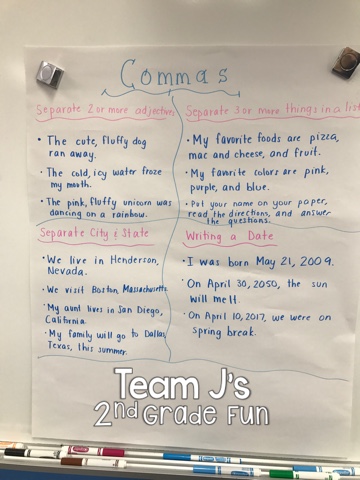 Commas
Separate 2 or more adjectives
• The cute, fluffy dog
ran away.
• The cold, icy water froze
my mouth.
• The pink, fluffy unicorn was
dancing on a rainbow.
Separate 3 or more things in a list
• My favorite foods are pizza,
mac and cheese, and fruit.
• My favorite colors are pink,
purple, and blue.
• Put your name on your paper,
read the directions, and answer
the questions.
Separate City & State
• We live in Henderson,
Nevada.
• We visit Boston, Massachusetts.
• My aunt lives in San Diego,
California.
• My family will go to Dallas,
Texas, this summer.
Writing a Date
• I was born May 21, 2009.
• On April 30, 2050, the sun
will melt.
• On April 10, 2017, we were on
spring break.
Team J's
2nd Grade Fun